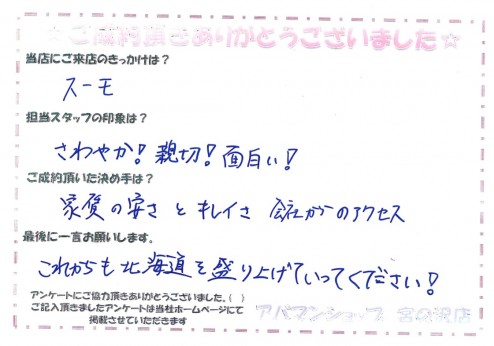 ご成約頂きありがとうございました☆
当店にご来店のきっかけは?
スーモ
担当スタッフの印象は?
さわやか!親切!面白い!
ご成約頂いた決め手は?
家賃の安さとキレイさ 会社からのアクセス
最後に一言お願いします。
これからも北海道を盛り上げていってください!
アンケートにご協力頂きありがとうございました。( )
ご記入頂きましたアンケートは当社ホームページにて
掲載させていただきます
アパマンショップ 宮の沢店